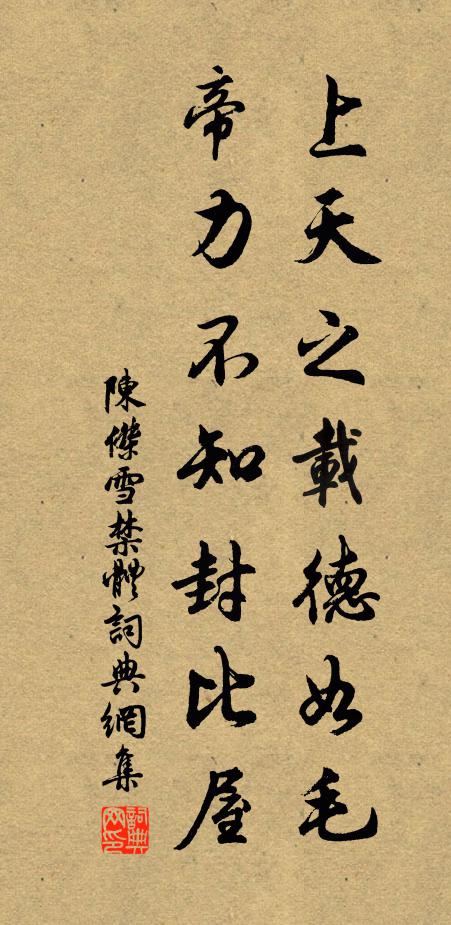 上天之載德如毛
帝力不知封比屋
陳傑雪禁體詞典網集
詞典网印